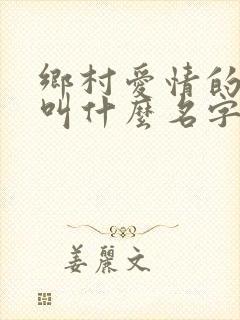 鄉村愛情的
叫什麼名字
姜麗文